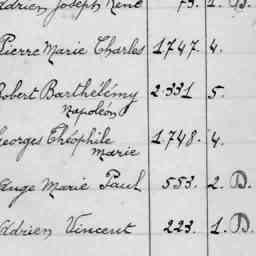 Adrien Joseph René 73. 1. D.
Pierre Marie Charles 1747. 4.
Robert Barthélémy 2.331 5.
Napoléon
Georges Théophile 1.748. 4.
Marie
Ange Marie Paul 553. 2. D.
Adrien Vincent 223. 1. D.